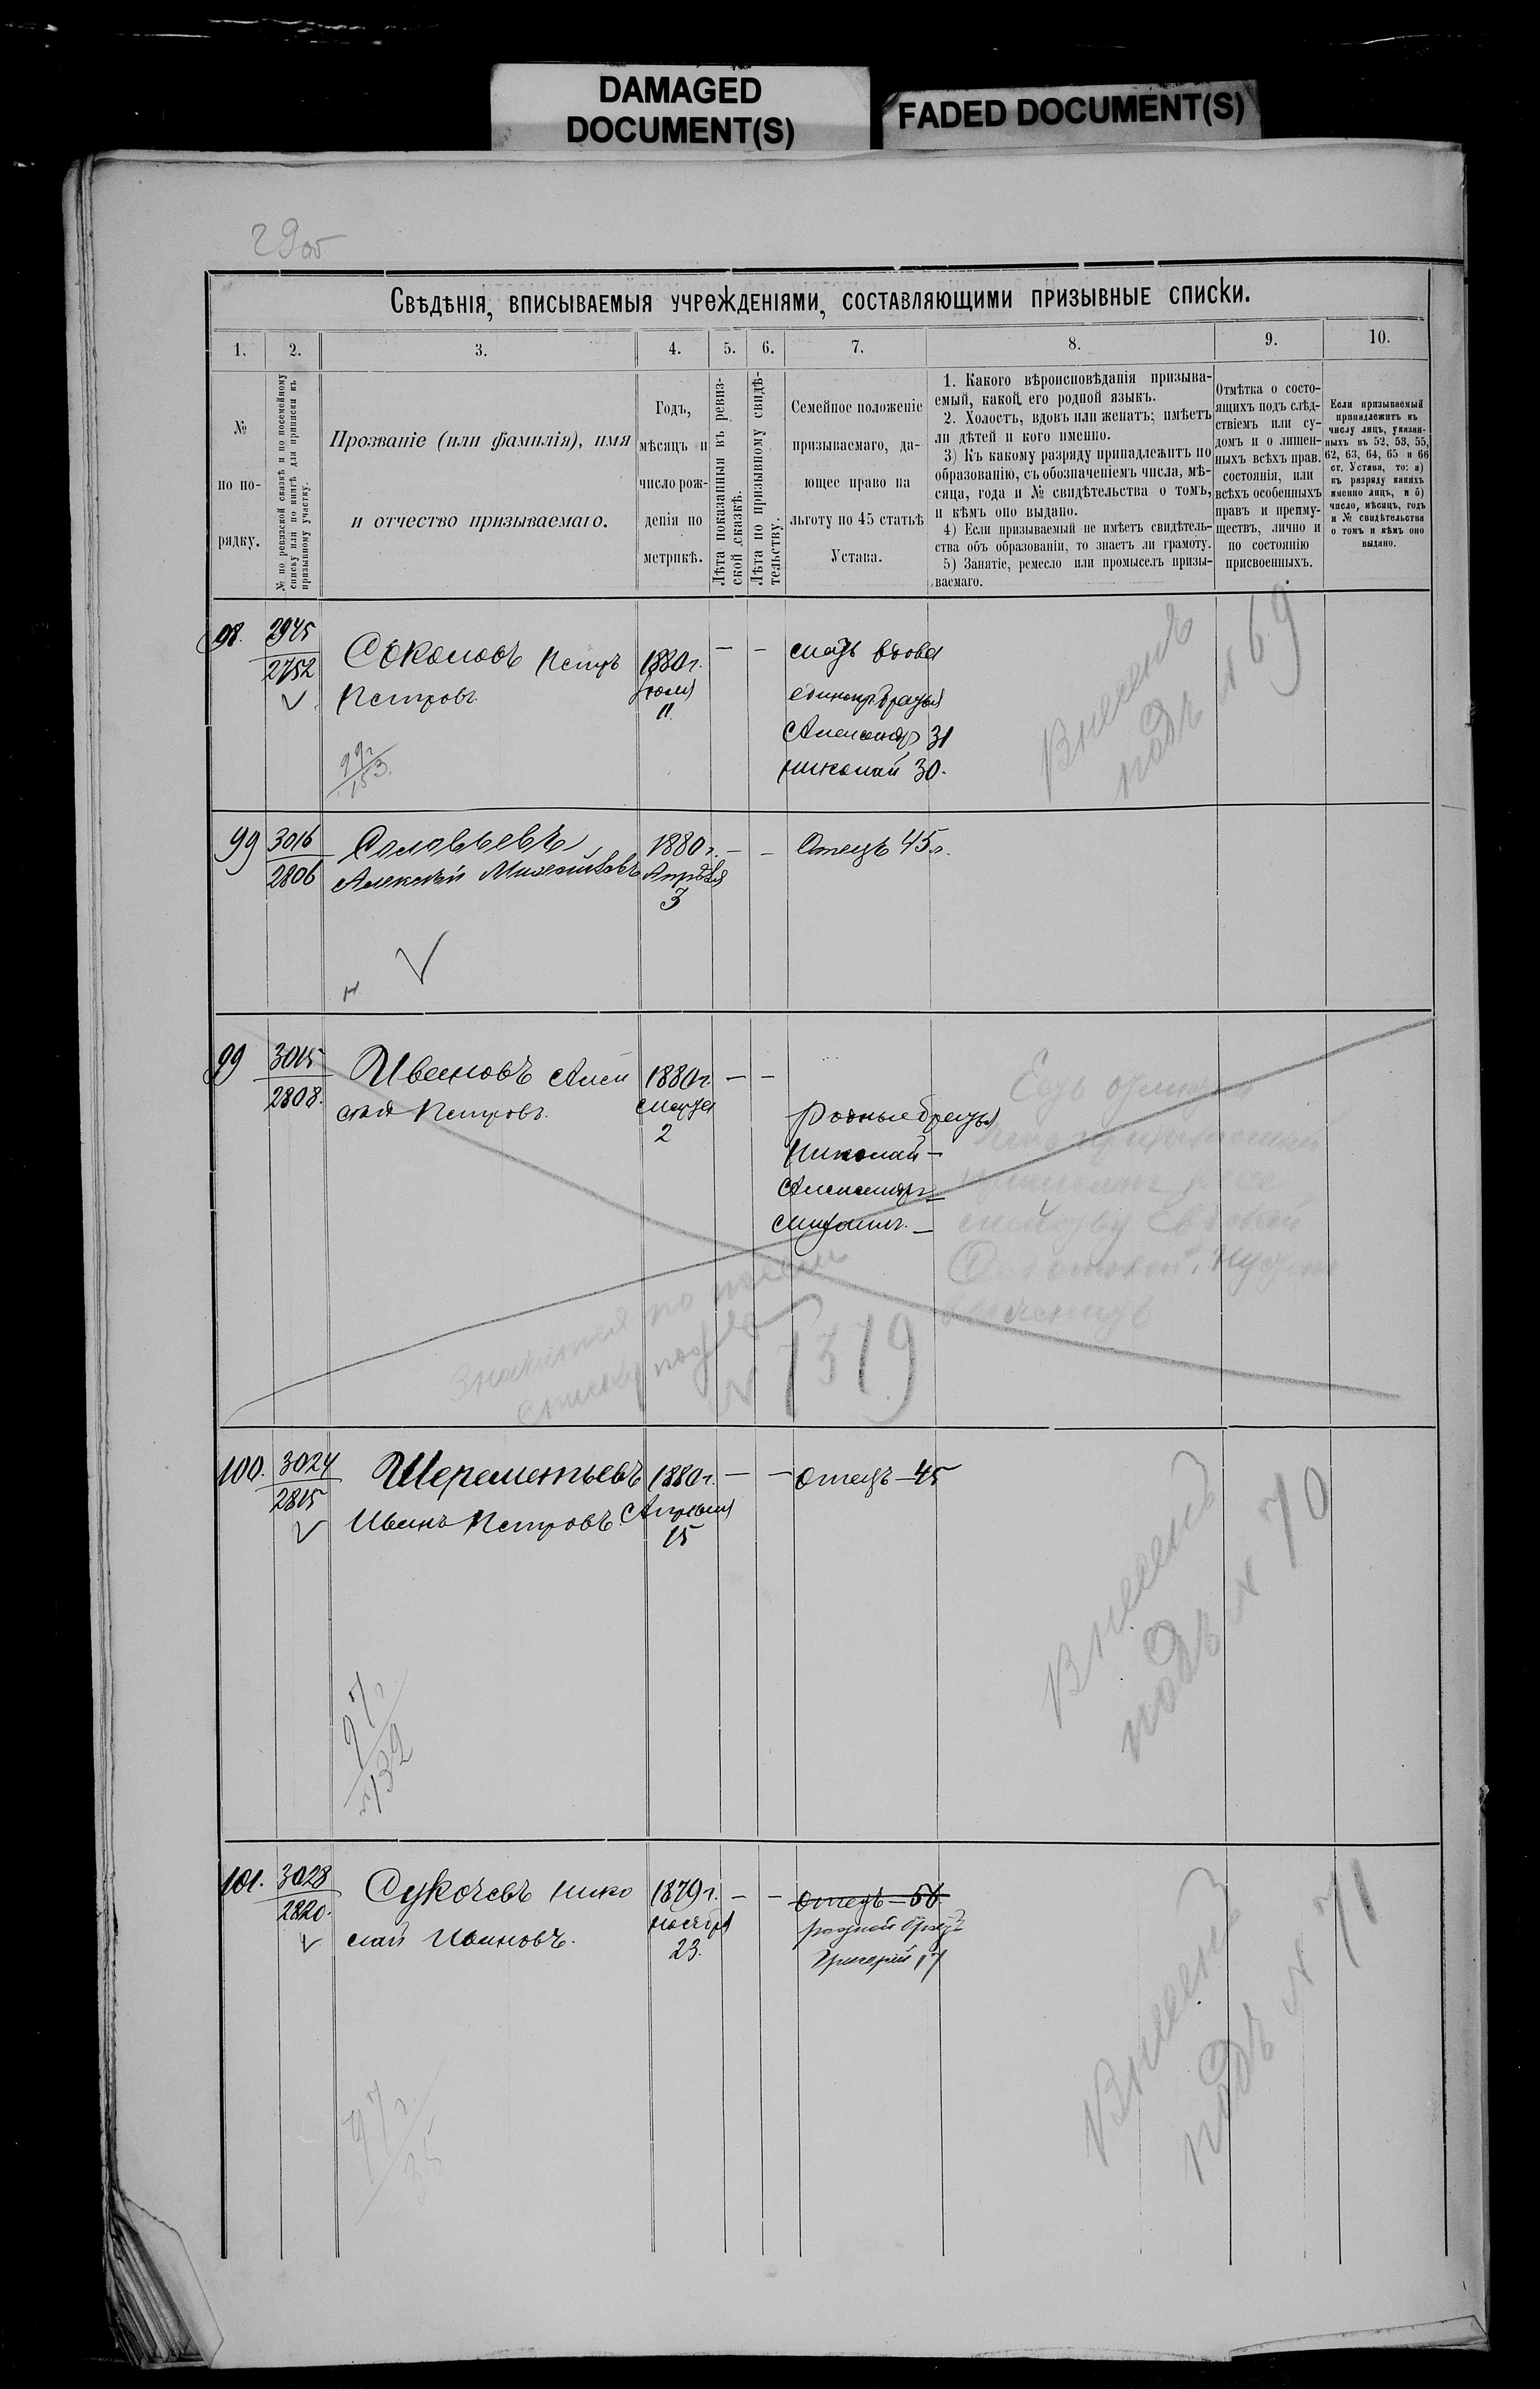 DAMAGED
DOCUMENT(S)
FADED DOCUMENT(S)
29об
Свѣдѣнія, вписываемыя учрежденіями, составляющими призывные списки.
1.
2.
3.
4.
5.
6.
7.
8.
9.
10.
№
по по-
рядку.
№ по ревизской сказкѣ и по посемейному
списку или по книгѣ для приписки къ
призывному участку.
Прозваніе (или фамилія), имя
и отчество призываемаго.
Годъ,
мѣсяцъ и
число рож-
денія по
метрикѣ.
Лѣта показанныя въ ревиз-
ской сказкѣ.
Лѣта по призывному свидѣ-
тельству.
Семейное положеніе
призываемаго, да-
ющее право на
льготу по 45 статьѣ
Устава.
1. Какого вѣроисповѣданія призыва-
емый, какой его родной языкъ.
2. Холостъ, вдовъ или женатъ; имѣетъ
ли дѣтей и кого именно.
3) Къ какому разряду принадлежитъ по
образованію, съ обозначеніемъ числа, мѣ-
сяца, года и № свидѣтельства о томъ,
и кѣмъ оно выдано.
4) Если призываемый не имѣетъ свидѣтель-
ства объ образованіи, то знаетъ ли грамоту.
5) Занятіе, ремесло или промыселъ призы-
ваемаго.
Отмѣтка о состо-
ящихъ подъ слѣд-
ствіемъ или су-
домъ и о лишен-
ныхъ всѣхъ прав.
состоянія, или
всѣхъ особенныхъ
правъ и преиму-
ществъ, лично и
по состоянію
присвоенныхъ.
Если призываемый
принадлежитъ къ
числу лицъ, указан-
ныхъ въ 52, 53, 55,
62, 63, 64, 65 и 66
ст. Устава, то: а)
къ разряду какихъ
именно лицъ, и б)
число, мѣсяцъ, годъ
и № свидѣтельства
о томъ и кѣмъ оно
выдано.
98.
2945
2752
Соколовъ Петръ
Петровъ
1880г.
Іюля
11
— —
мать вдова
единокр. братья
Александръ 31
Николай 30.
Внесенъ
подъ № 69
99г
153.
99
3016
2806
Соловьевъ
Алексѣй
1880г.
Апрѣля
3
— —
Отецъ 45л.
99
3015
2808.
Ивановъ Алек
сѣй Петровъ.
1880г.
Марта
2
— —
родные братья
Николай —
Александръ —
—
№ 1319
100.
3024
2815
Шереметьевъ
Иванъ Петровъ.
1880г.
Апрѣля
15
— —
отецъ — 45
Внесенъ
подъ № 70
97г
132
101.
3028
2820.
Сукачевъ Нико
лай Ивановъ.
1879г.
ноября
23.
— —
отецъ — 56
родной братъ
Григорій 17
Внесенъ
подъ № 71
97г
35